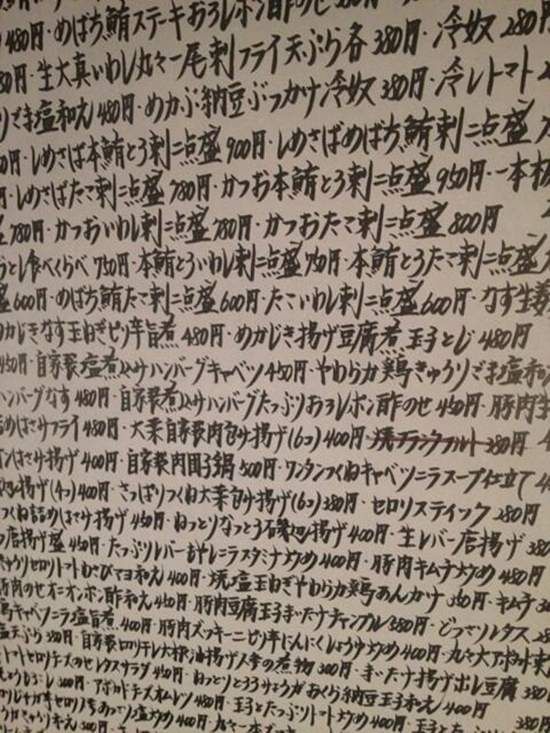 480円・めばち鮪ステーキおろしポン酢のせ 380円
生大真いわし丸々一尾刺フライ天ぷら各380円・冷奴280円
ごま塩和え480円・めかぶ納豆ぶっかけ冷奴380円・冷しトマト
しめさば本鮪とろ刺二点盛900円・しめさばめばち鮪刺二点盛
円・しめさばたこ刺二点盛780円・かつお本鮪とろ刺二点盛950円・一本
780円・かつおいわし刺二点盛780円・かつおたこ刺二点盛800円
食べくらべ750円・本鮪とろいわし刺二点盛750円・本鮪とろたこ刺二点盛
盛600円・めばち鮪たこ刺二点盛600円・たこいわし刺二点盛600円・なす生姜
めかじきなす玉ねぎピリ辛旨煮480円・めかじき揚げ豆腐煮玉子とじ480円
450円・自家製塩煮込みハンバーグキャベツ450円・やわらか鶏きゅうりごま塩和え
ハンバーグなす480円・自家製煮込みハンバーグたっぷりおろしポン酢のせ450円・豚肉生
はさみフライ480円・大葉自家製肉包み揚げ(6コ)400円・焼フランクフルト380円
はさみ揚げ400円・自家製肉団子鍋500円・ワンタンつくねキャベツニラスープ仕立て
揚げ(4コ)400円・さっぱりつくね大葉包み揚げ(6コ)380円・セロリスティック280円
つくね詰めはさみ揚げ450円・ねっとりなっとう磯辺揚げ400円・生レバー唐揚げ380
唐揚げ盛450円・たっぷりレバーもやしニラスタミナ炒め400円・豚肉キムチ炒め480円
きゅうりセロリトマトわさびマヨ和え400円・焼塩玉ねぎやわらか鶏あんかけ350円・キムチ
豚肉のせオニオンポン酢和え450円・豚肉豆腐玉子まいたけチャンプル380円・どっさりレタス
鶏キャベツニラ塩旨煮400円・豚肉ズッキーニピリ辛にんにくしょうゆ炒め400円・丸々大アボカド
天ぷら380円・自家製切り干し大根油揚げ人参の煮物300円・まいたけ揚げ出し豆腐380円
トマトセロリチーズのせレタスサラダ450円・ねっとりとろろみょうがおくら納豆玉子和え400円
300円・アボカドチーズオムレツ480円・玉子とたっぷりトマト炒め400円・玉子と